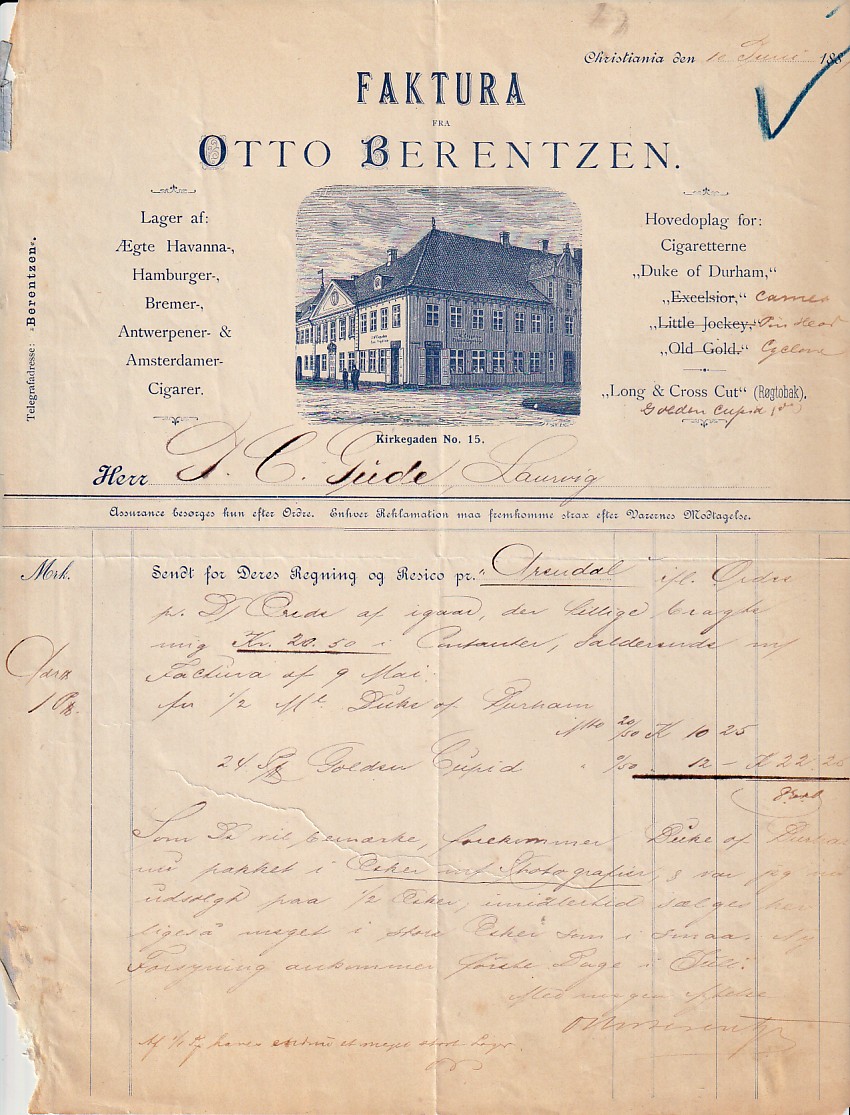 Christiania den 10 Juni 188
FAKTURA
FRA
OTTO BERENTZEN.
Telegrafadresse: „Berentzen".
Lager af:
Ægte Havanna-,
Hamburger-,
Bremer-,
Antwerpener- &
Amsterdamer-
Cigarer.
Hovedoplag for:
Cigaretterne
„Duke of Durham,“
„Excelsior,“ Cameo
„Little Jockey,“ Pin Head
„Old Gold.“ Cyclone
„Long & Cross Cut“ (Røgtobak).
Golden Cupid
Kirkegaden No. 15.
Herr T. C. Gude, Laurvig
Assurance besorges kun efter Ordre. Enhver Reklamation maa fremkomme strax efter Varernes Modtagelse.
Mrk. Sendt for Deres Regning og Resico pr. "Arendal" ifl. Ordre
pr. af igaar, der tillige bragte
mig Kr. 20.50 i Contanter,
Factura af 9 Mai.
for 1/2 Ml Duke of Durham
K 10 25
24 Golden Cupid " 12 - K 22.25
Som De vil bemærke, forekommer Duke of Durham
nu pakket i Esker m/ Photografier, & var jeg
udsolgt paa 1/2 Esker, imidlertid sælges
ligeså meget i store Esker som i smaa. Ny
Forsyning ankommer første Dage i Juli.
Med megen Agtelse
Otto Berentzen
Af 1/1 haves endnu et meget stort Lager.